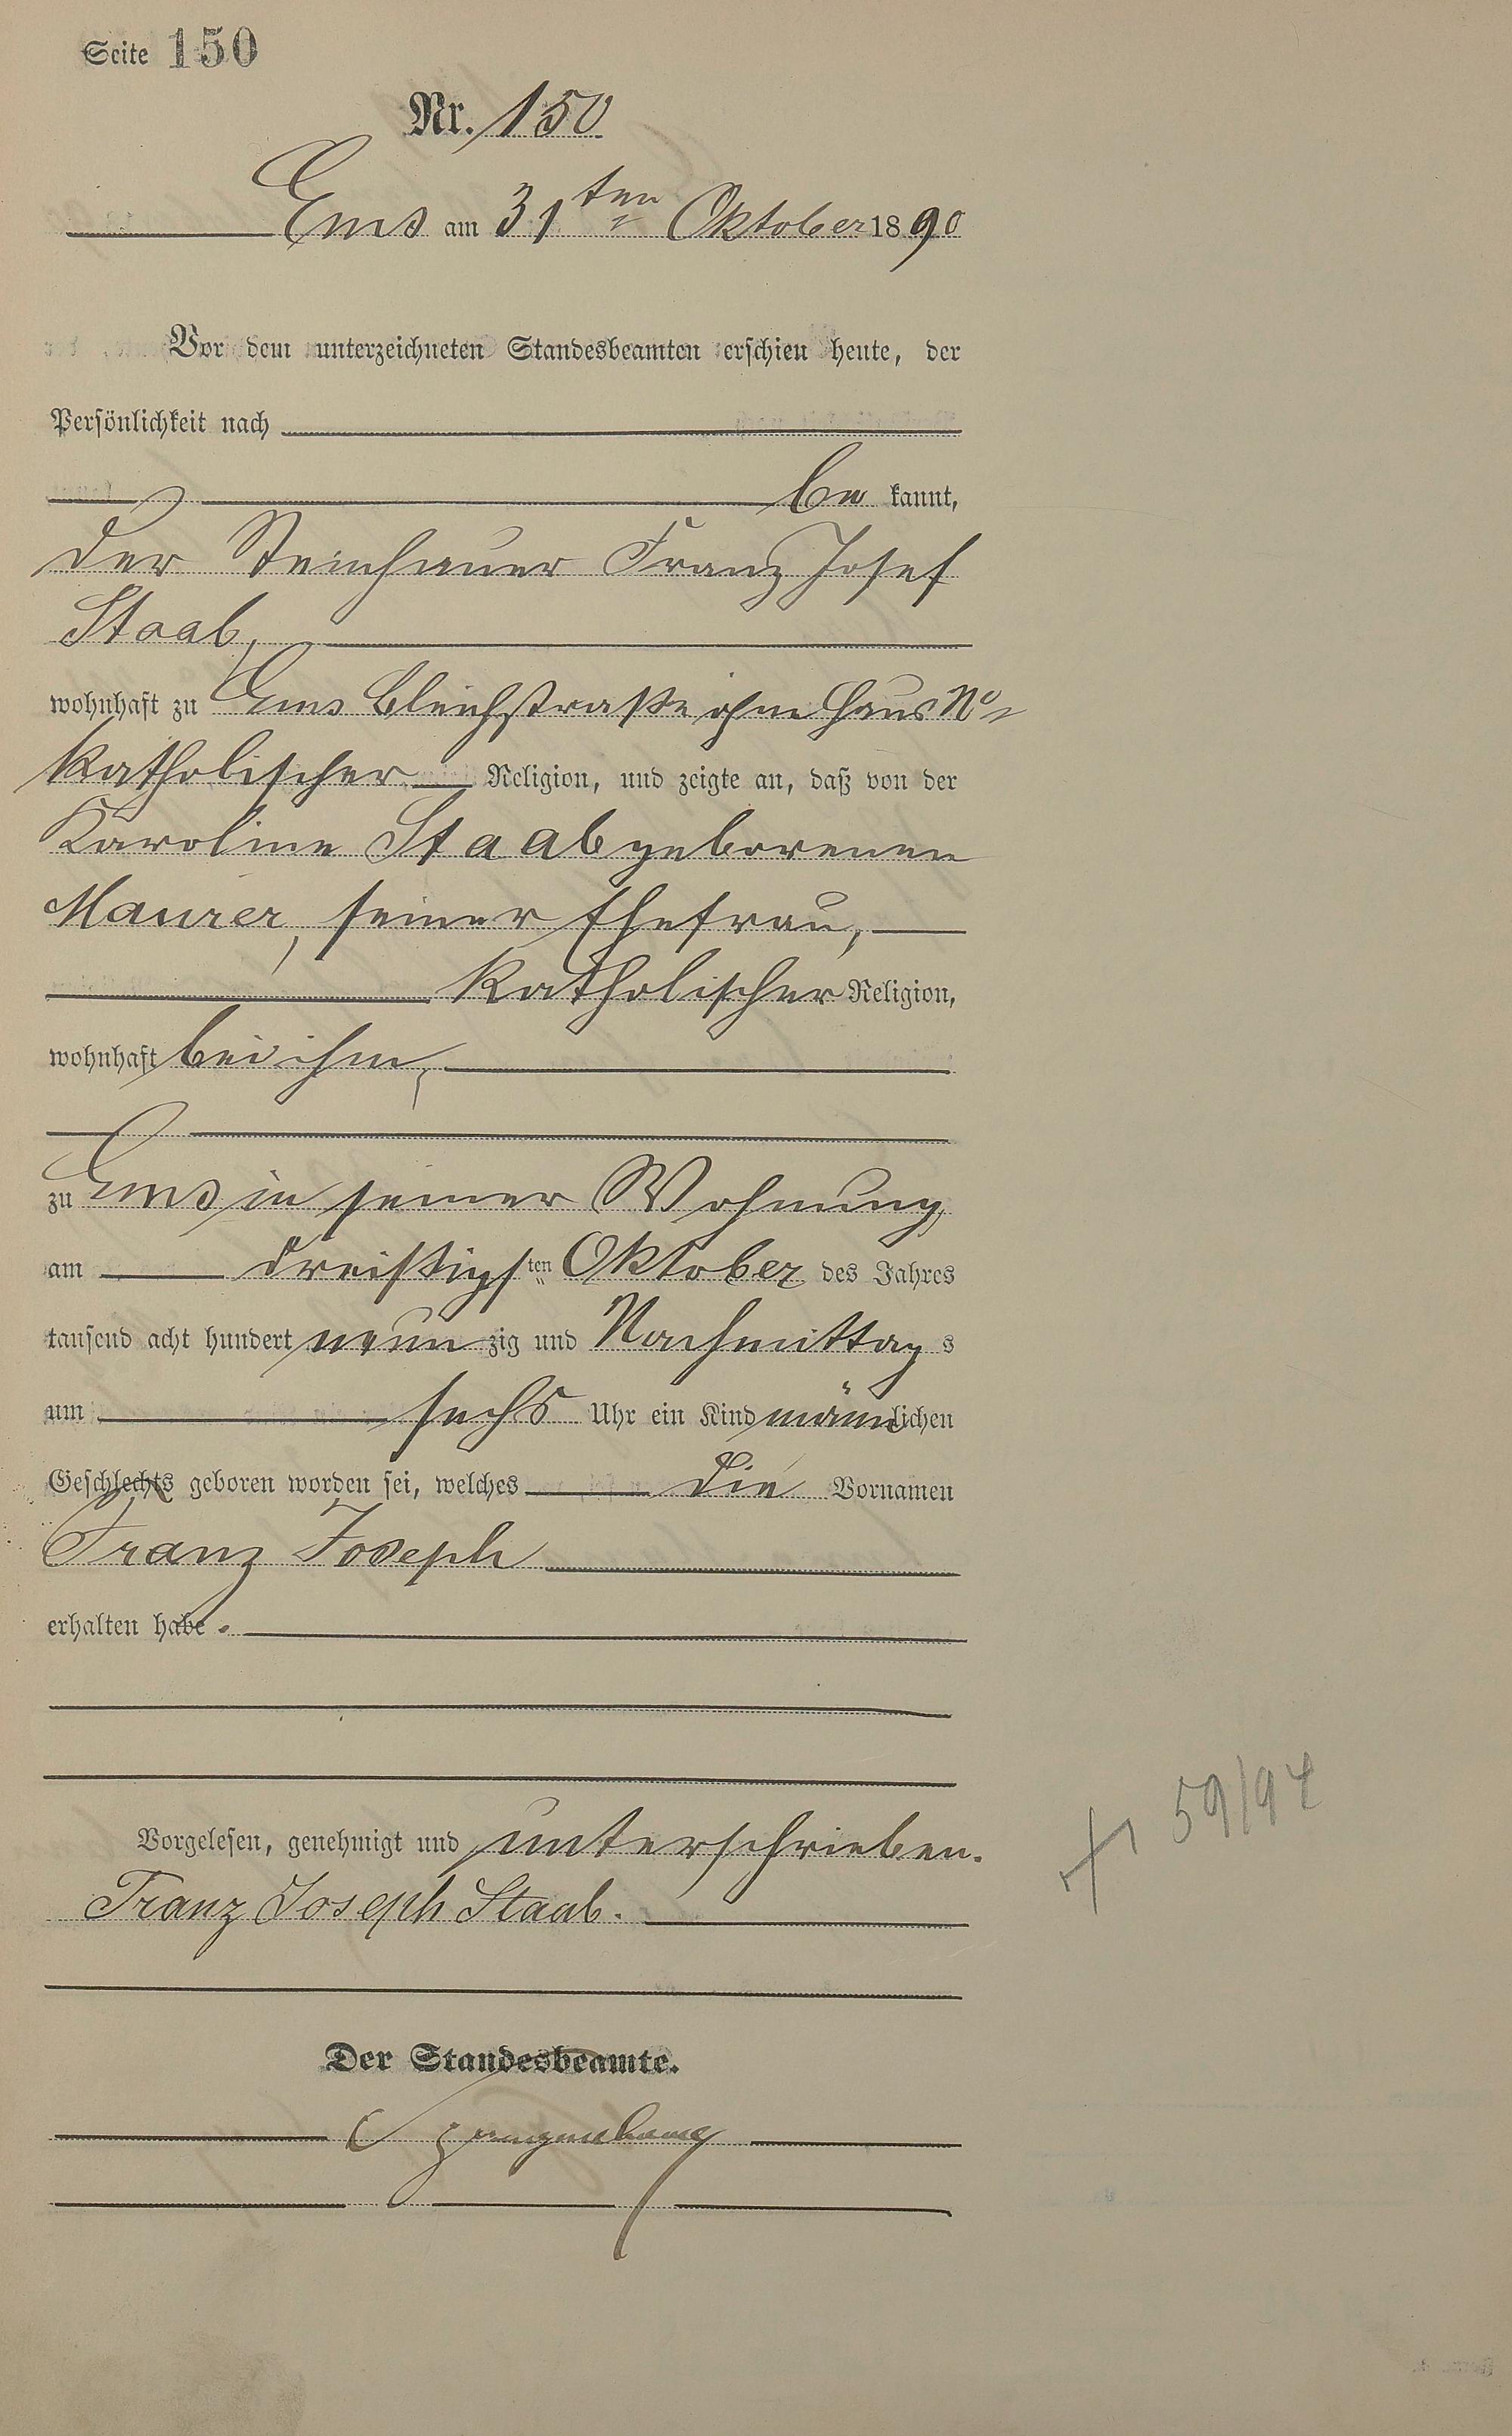 Seite 150
Nr. 150
Ems am 31ten Oktober 1890
Vor dem unterzeichneten Standesbeamten erschien heute, der
Persönlichkeit nach
be kannt,
der Steinhauer Franz Josef
Staab,
wohnhaft zu Ems Bleichstraße ohne Haus No
katholischer Religion, und zeigte an, daß von der
Karoline Staab geborenen
Maurer, seiner Ehefrau,
katholischer Religion,
wohnhaft bei ihm,
zu Ems in seiner Wohnung,
am dreißigsten Oktober des Jahres
tausend acht hundert neun zig und Nachmittag s
um sechs Uhr ein Kind männlichen
Geschlechts geboren worden sei, welches die Vornamen
Franz Joseph
erhalten habe.
Vorgelesen, genehmigt und unterschrieben.
Franz Joseph Staab.
59/94
Der Standesbeamte.